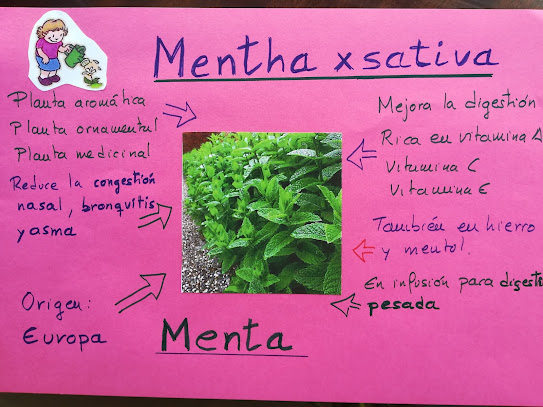 Mentha x sativa
Planta aromática
Planta ornamental
Planta medicinal
Reduce la congestión
nasal, bronquitis
y asma
Origen:
Europa
Menta
Mejora la digestión
Rica en vitamina A
Vitamina C
Vitamina E
También en hierro
y mentol.
En infusión para
pesada